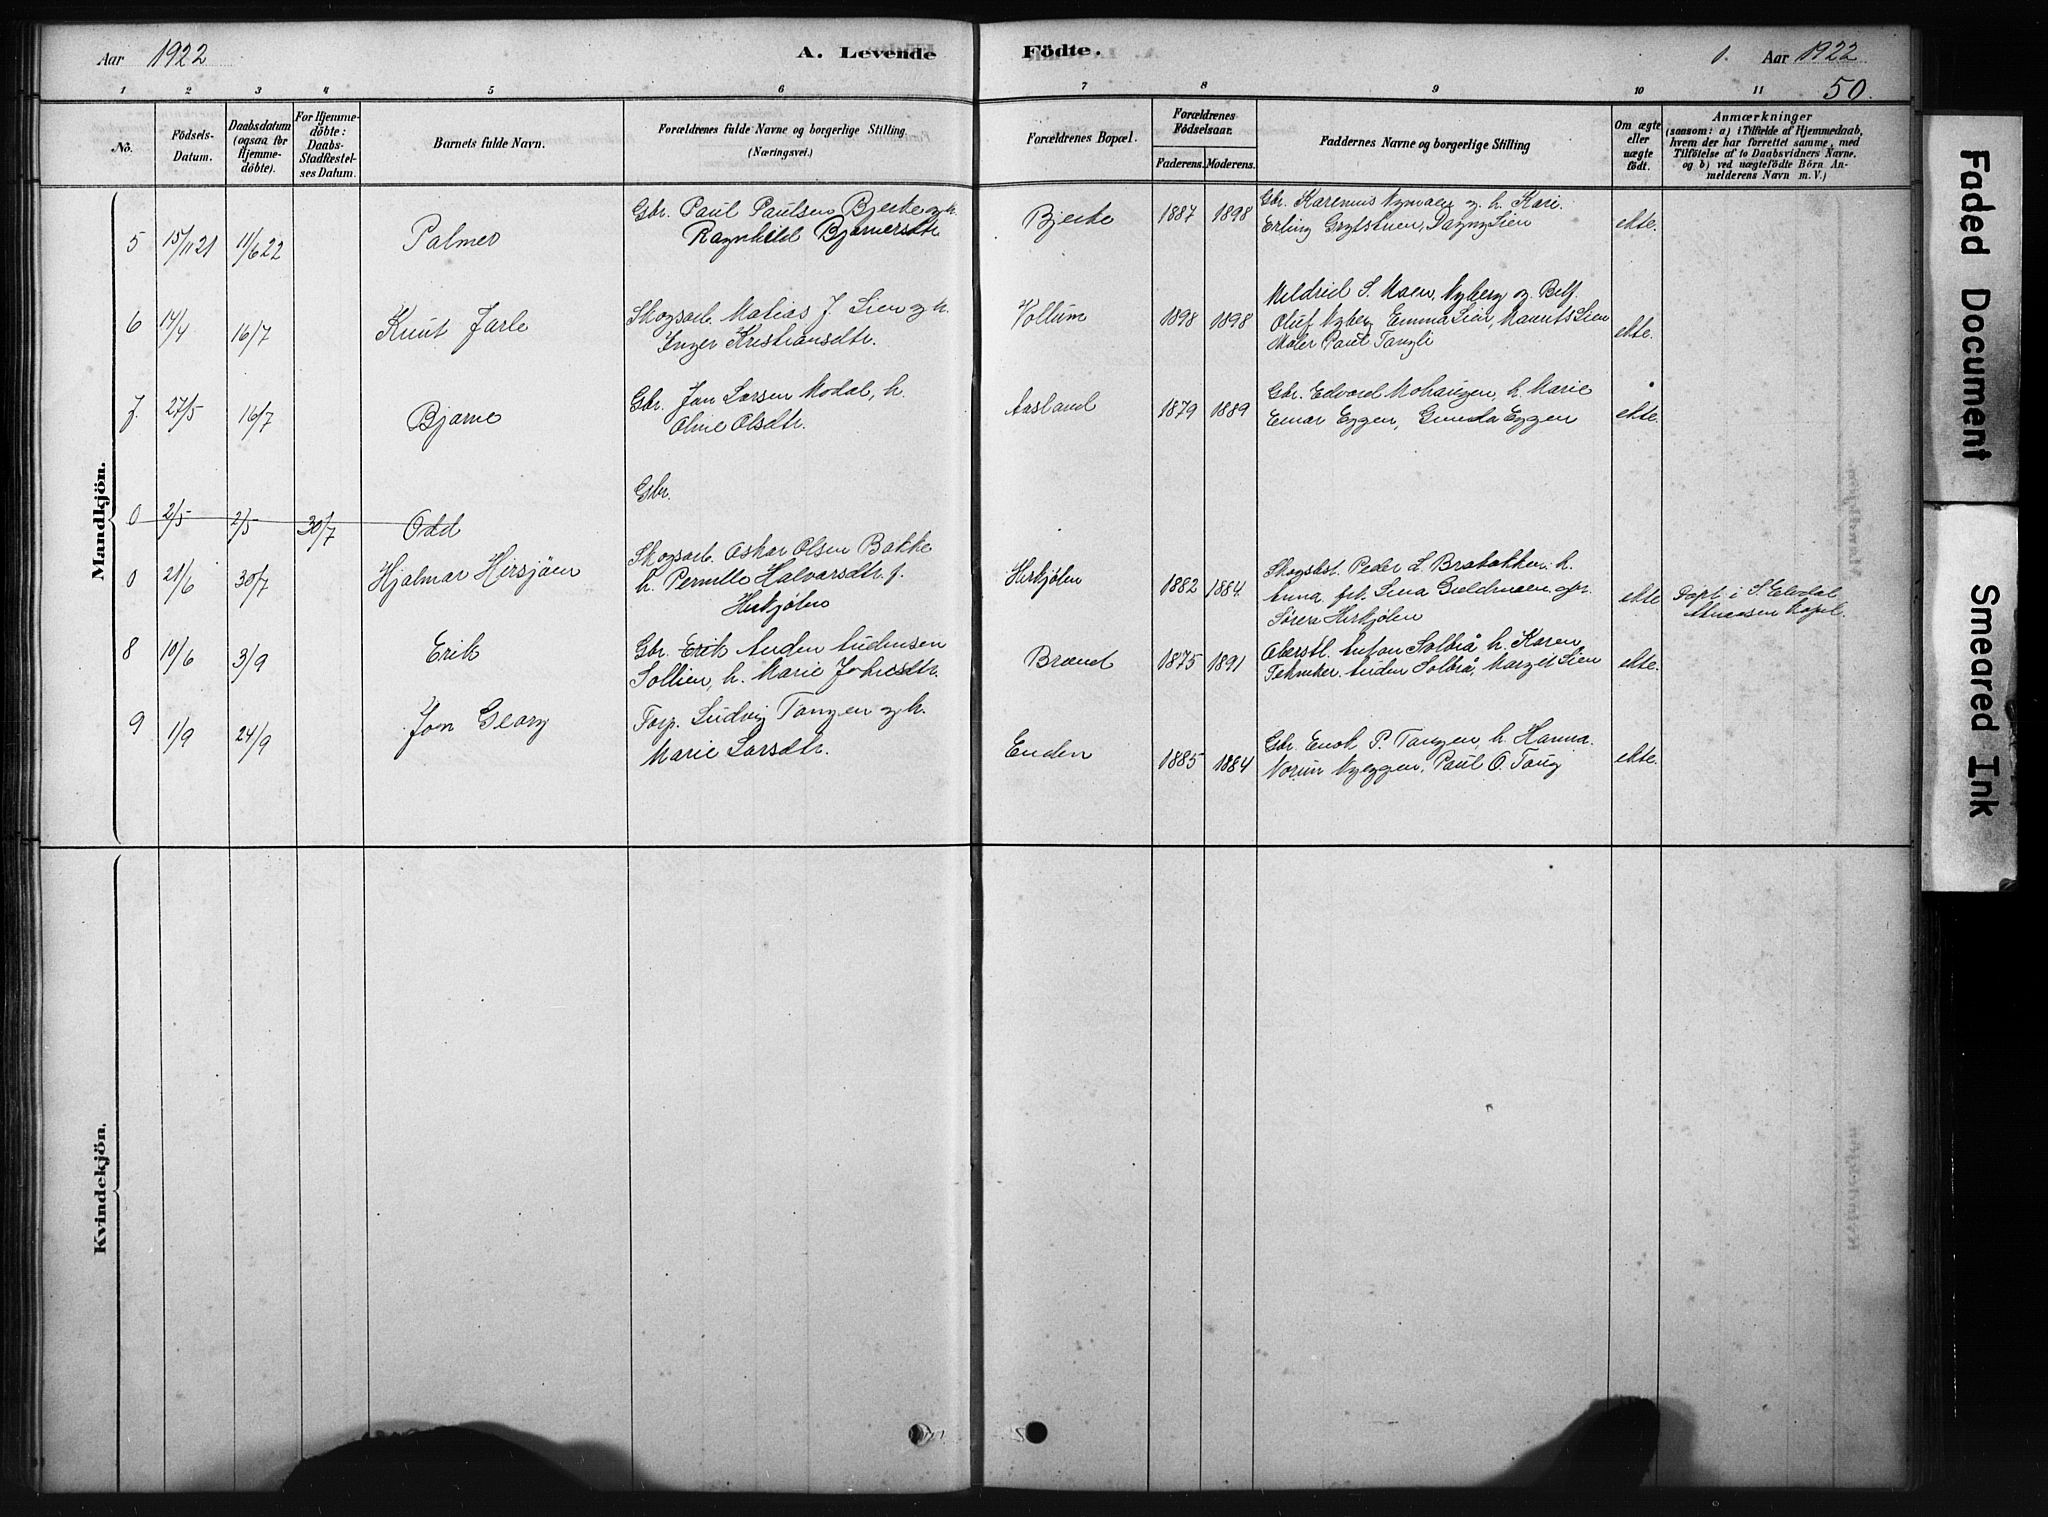 Aar 1922 A. Levende Födte. 1. Aar 1922
50.
1 2 3 4 5 6 7 8 9 10 11
No.
Födsels-Datum.
Daabsdatum (ogsaa for Hjemmedöbte).
For Hjemmedöbte: Daabs-Stadfæstelses Datum.
Barnets fulde Navn.
Forældrenes fulde Navne og borgerlige Stilling. (Næringsvei.)
Forældrenes Bopæl.
Forældrenes Födselsaar.
Faderens. Moderens.
Faddernes Navne og borgerlige Stilling
Om ægte eller uægte födt.
Anmærkninger
(saasom: a) i Tilfælde af Hjemmedaab, hvem der har forrettet samme, med Tilföielse af to Daabsvidners Navne, og b) ved uægtefödte Börn Anmelderens Navn m. V.)
Mandkjön.
5 15/11 21 11/6 22 Palmer Gbr. Paul Paulsen Bjerke og h. Ragnhild Bjarnersdtr Bjerke 1887 1898 Gbr. Karenius Nymoen og h. Kari. Erling Grytstuen, Dagny Lien ekte.
6 14/4 16/7 Knut Jarle Skogsarb. Matias J. Lien og h. Inger Kristiansdtr. Vollum 1898 1898 Mildrid S. Moen, Nyberg og Oluf Nyberg Emma Lien, Maurits Lien Maler Paul Tangli ekte.
7. 27/5 16/7 Bjarne Gbr. Jon Larsen Modal, h. Oline Olsdtr. Aasland 1879 1889 Gbr. Edvard Mohaugen, h. Marie Einar Eggen, Gunda Eggen ekte.
Gbr.
0 2/5 2/5 30/7 Odd
0 21/6 30/7 Hjalmar Hirsjöen Skogsarb. Oskar Olsen Bakke h. Pernille Halvorsdtr. f. Hirkjølen Hirkjølen 1882 1884 Peder L. Bratbakken h. Anna Søren Hirkjølen ekte Døpt i S. Elvdal Atneosen Kapel.
8 10/6 3/9 Erik Gbr. Erik Auden Audensen Sollien, h. Marie Johnsdtr. Brænd 1875 1891 Oberstl. Anton Solbrå h. Karen, Tekniker Auden Solbrå, Margit Lien ekte.
9 1/9 24/9 Jon Georg Forp. Ludvig Tangen og h. Marie Larsdtr. Enden 1885 1884 Gbr. Enok P. Tangen, h. Hanna. Norun Nyeggen, Paul O. Tang ekte.
Kvindekjön.
Faded Document
Smeared Ink